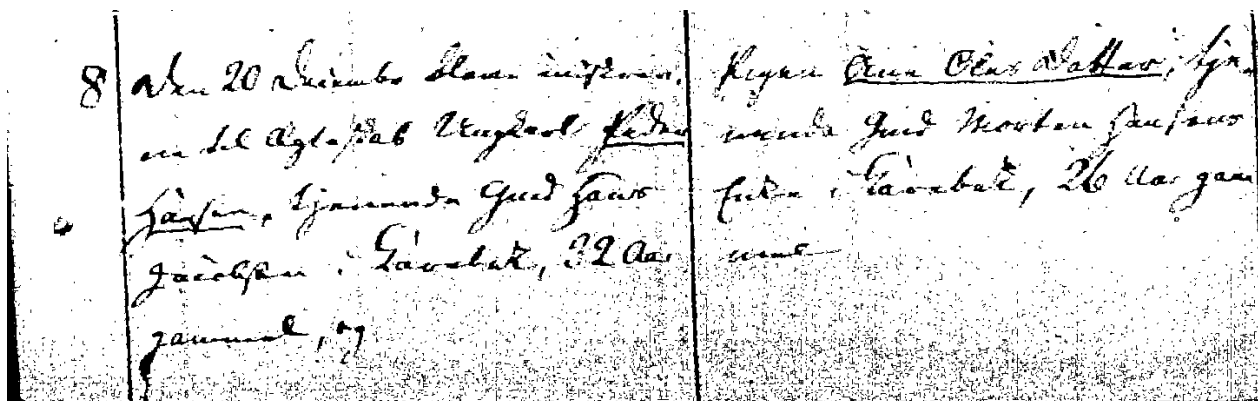 8 Den 20 December bleve indskrev-
ne til Ægteskab Ungkarl Peder
Hansen, tjenende Gmd Hans
Jacobsen i Taarebek, 32 Aar
gammel, og
Pigen Ane Oles Datter, tje-
nende Gmd Morten Hansens
Enke i Taarebek, 26 Aar gam
mel